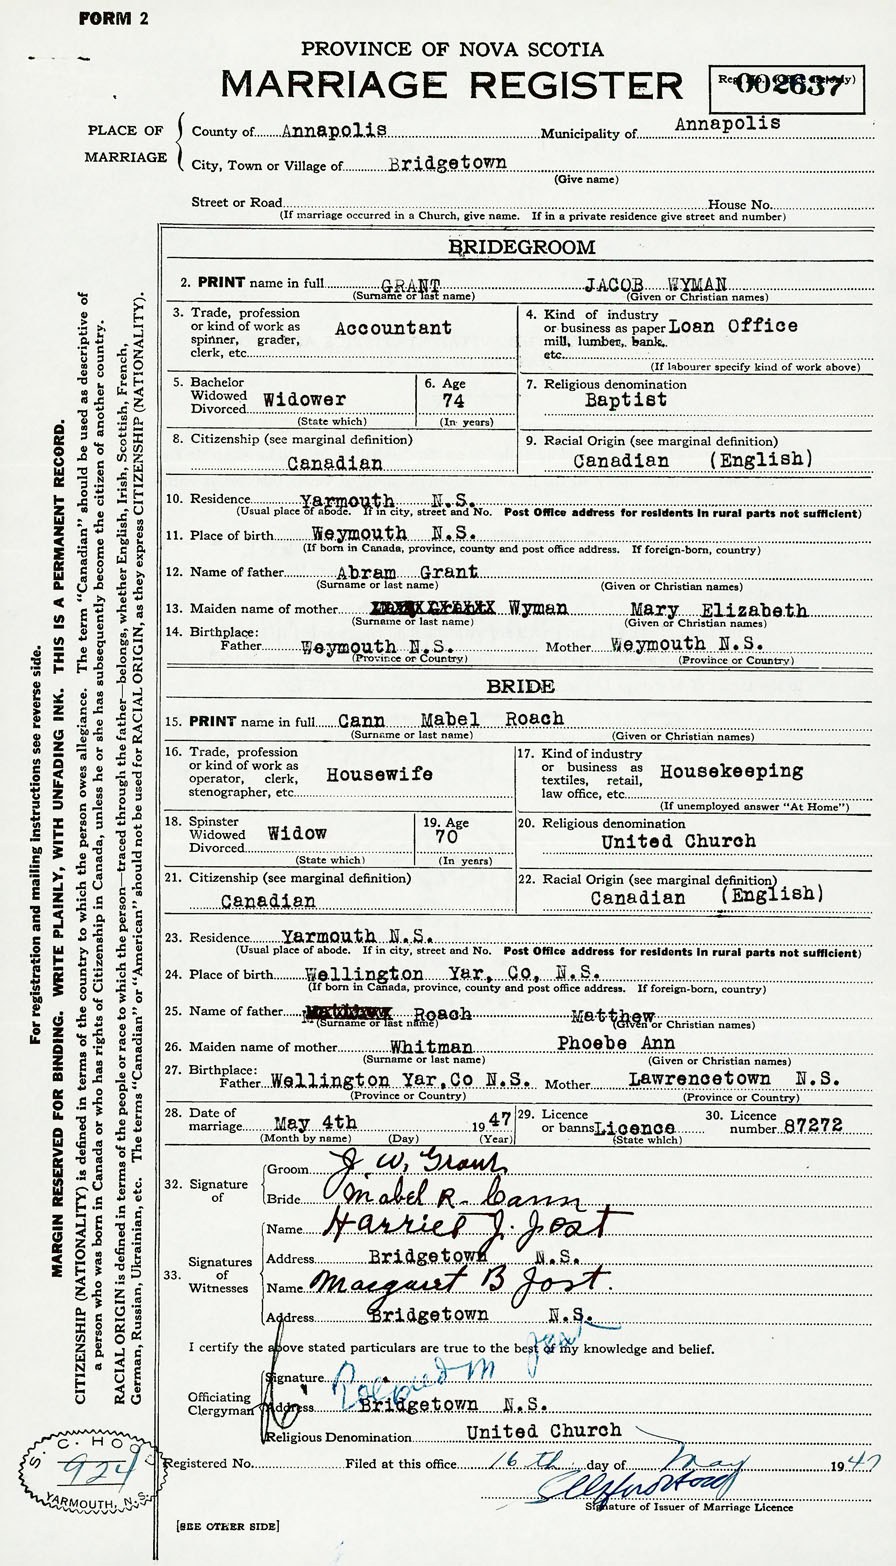 FORM 2
PROVINCE OF NOVA SCOTIA
MARRIAGE REGISTER
Reg. No. (Office use only)
002637
PLACE OF MARRIAGE
County of Annapolis Municipality of Annapolis
City, Town or Village of Bridgetown
(Give name)
Street or Road House No.
(If marriage occurred in a Church, give name. If in a private residence give street and number)
BRIDEGROOM
2. PRINT name in full GRANT JACOB WYMAN
(Surname or last name) (Given or Christian names)
3. Trade, profession or kind of work as spinner, grader, clerk, etc. Accountant
4. Kind of industry or business as paper mill, lumber, bank, etc. Loan Office
(If labourer specify kind of work above)
5. Bachelor Widowed Divorced Widower
(State which)
6. Age 74
(In years)
7. Religious denomination Baptist
8. Citizenship (see marginal definition) Canadian
9. Racial Origin (see marginal definition) Canadian (English)
10. Residence Yarmouth N.S.
(Usual place of abode. If in city, street and No. Post Office address for residents in rural parts not sufficient)
11. Place of birth Weymouth N.S.
(If born in Canada, province, county and post office address. If foreign-born, country)
12. Name of father Abram Grant
(Surname or last name) (Given or Christian names)
13. Maiden name of mother Wyman Mary Elizabeth
(Surname or last name) (Given or Christian names)
14. Birthplace: Father Weymouth N.S. Mother Weymouth N.S.
(Province or Country) (Province or Country)
BRIDE
15. PRINT name in full Cann Mabel Roach
(Surname or last name) (Given or Christian names)
16. Trade, profession or kind of work as operator, clerk, stenographer, etc. Housewife
17. Kind of industry or business as textiles, retail, law office, etc. Housekeeping
(If unemployed answer "At Home")
18. Spinster Widowed Divorced Widow
(State which)
19. Age 70
(In years)
20. Religious denomination United Church
21. Citizenship (see marginal definition) Canadian
22. Racial Origin (see marginal definition) Canadian (English)
23. Residence Yarmouth N.S.
(Usual place of abode. If in city, street and No. Post Office address for residents in rural parts not sufficient)
24. Place of birth Wellington Yar, Co, N.S.
(If born in Canada, province, county and post office address. If foreign-born, country)
25. Name of father Roach Matthew
(Surname or last name) (Given or Christian names)
26. Maiden name of mother Whitman Phoebe Ann
(Surname or last name) (Given or Christian names)
27. Birthplace: Father Wellington Yar,Co N.S. Mother Lawrencetown N.S.
(Province or Country) (Province or Country)
28. Date of marriage May 4th 1947
(Month by name) (Day) (Year)
29. Licence or banns Licence
(State which)
30. Licence number 87272
32. Signature of
Groom J. W. Grant
Bride Mabel R. Cann
33. Signatures of Witnesses
Name Harriet J. Jost
Address Bridgetown N.S.
Name Margaret B Jost.
Address Bridgetown N.S.
I certify the above stated particulars are true to the best of my knowledge and belief.
Officiating Clergyman
Signature M Jost
Address Bridgetown N.S.
Religious Denomination United Church
Registered No. 924 Filed at this office 16th day of May 1947
Signature of Issuer of Marriage Licence
S. C. HOOD
YARMOUTH, N.S.
[SEE OTHER SIDE]
For registration and mailing instructions see reverse side.
MARGIN RESERVED FOR BINDING. WRITE PLAINLY, WITH UNFADING INK. THIS IS A PERMANENT RECORD.
CITIZENSHIP (NATIONALITY) is defined in terms of the country to which the person owes allegiance. The term "Canadian" should be used as descriptive of
a person who was born in Canada or who has rights of Citizenship in Canada, unless he or she has subsequently become the citizen of another country.
RACIAL ORIGIN is defined in terms of the people or race to which the person—traced through the father—belongs, whether English, Irish, Scottish, French,
German, Russian, Ukrainian, etc. The terms "Canadian" or "American" should not be used for RACIAL ORIGIN, as they express CITIZENSHIP (NATIONALITY).